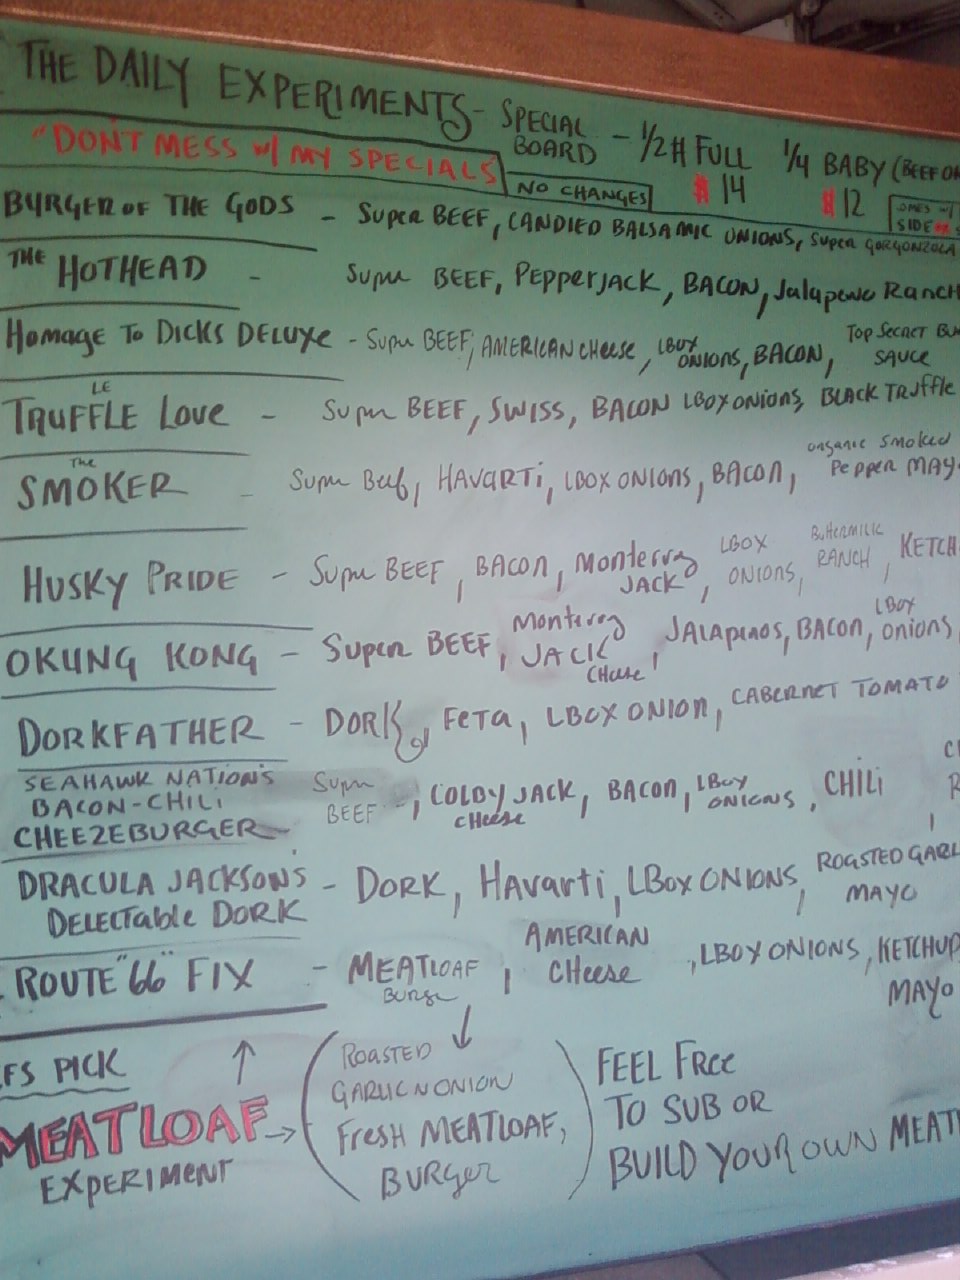 THE DAILY EXPERIMENTS - SPECIAL BOARD - 1/2# FULL 1/4 BABY (BEEF
"DON'T MESS w/ MY SPECIALS $14 $12
NO CHANGES SIDE
BURGER OF THE GODS - SUPER BEEF, CANDIED BALSAMIC ONIONS, SUPER GORGONZOLA
THE HOTHEAD - Super BEEF, PEPPERJACK, BACON, Jalapeno RANCH
Homage To DICKS DELUXE - Super BEEF, AMERICAN CHEESE, LBOX ONIONS, BACON, TOP SECRET SAUCE
LE TRUFFLE LOVE - Super BEEF, SWISS, BACON LBOX ONIONS, BLACK TRUFFLE
The SMOKER - Super Beef, HAVARTI, LBOX ONIONS, BACON, organic smoked PEPPER MAY
HUSKY PRIDE - Super BEEF, BACON, Monterray JACK, LBOX ONIONS, Buttermilk RANCH, KETCH
OKUNG KONG - SUPER BEEF, Monteray JACK CHeese, JALAPENOS, BACON, LBOX onions,
DORKFATHER - DORK, FETA, LBOX ONION, CABERNET TOMATO
SEAHAWK NATION'S
BACON-CHILI
CHEEZEBURGER - Super BEEF, COLBY JACK CHEESE, BACON, LBOX ONIONS, CHILI
DRACULA JACKSON'S
DELECTABLE DORK - DORK, HAVARTI, LBOX ONIONS, ROASTED GARL MAYO
ROUTE "66" FIX - MEATLOAF Burger, AMERICAN CHeese, LBOX ONIONS, KETCHUP MAYO
FS PICK
MEATLOAF
EXPERIMENT
(ROASTED
GARLIC N ONION
FRESH MEATLOAF,
BURGER)
FEEL FREE
TO SUB OR
BUILD YOUR OWN MEAT